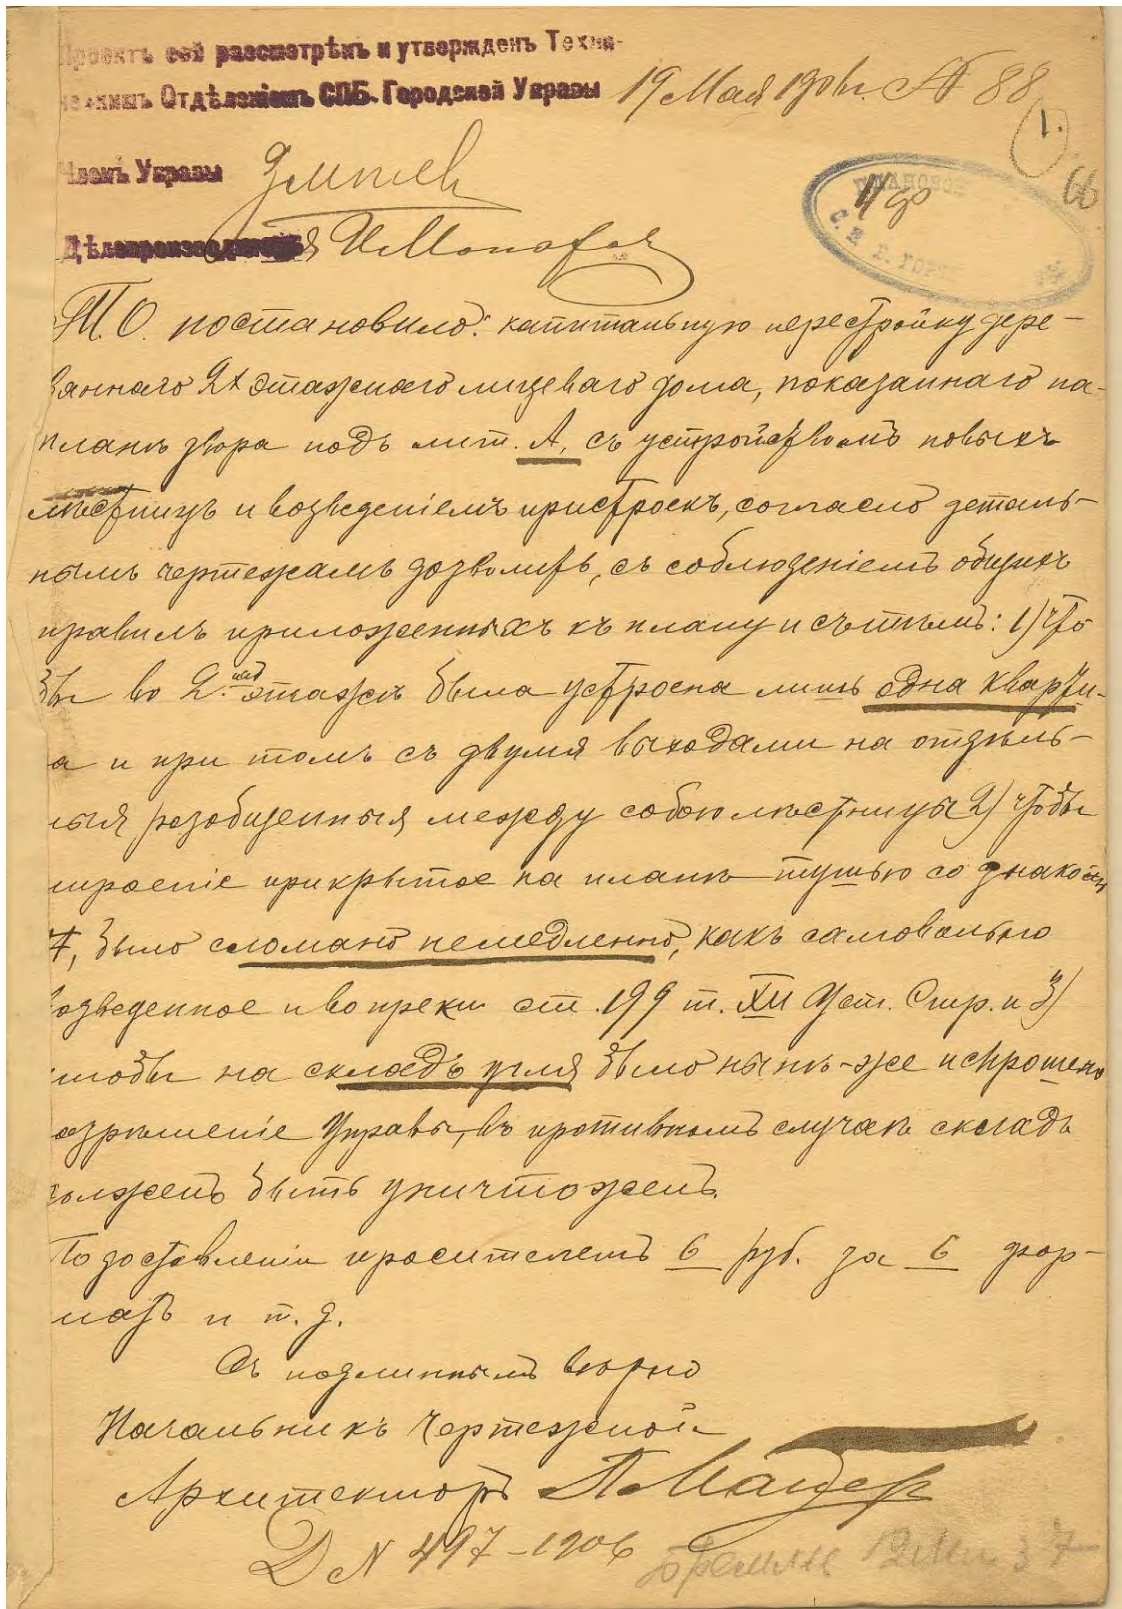 Проектъ сей разсмотрѣнъ и утвержденъ Техни-
ческимъ Отдѣленіемъ СПБ. Городской Управы 19 Мая 1906 г. № 88
1.
66
Членъ Управы
Дѣлопроизводитель
Т.О. постановило: капитальную перестройку дере-
вяннаго 2х этажнаго лицеваго дома, показаннаго на
планѣ двора подъ лит. А, съ устройствомъ новыхъ
лѣстницъ и возведеніемъ пристроекъ, согласно деталь-
нымъ чертежамъ дозволить, съ соблюденіемъ общихъ
правилъ приложенныхъ къ плану и съ тѣмъ: 1) что
бы во 2.мъ этажѣ была устроена лишь одна кварти-
а и при томъ съ двумя выходами на отдѣль-
ныя разобщенныя между собою лѣстницы 2) чтобы
строеніе прикрытое на планѣ тушью со знакомъ
7, было сломано немедленно, какъ самовольно
возведенное и вопреки ст. 199 т. XII Уст. Стр. и 3)
чтобы на складъ угля было нынѣ-же испрошено
азрѣшеніе Управы, въ противномъ случаѣ складъ
долженъ быть уничтоженъ.
По доставленіи просителемъ 6 руб. за 6 фор-
матъ и т. д.
Съ подлиннымъ вѣрно
Начальникъ Чертежной
Архитекторъ
Д N 497-1906